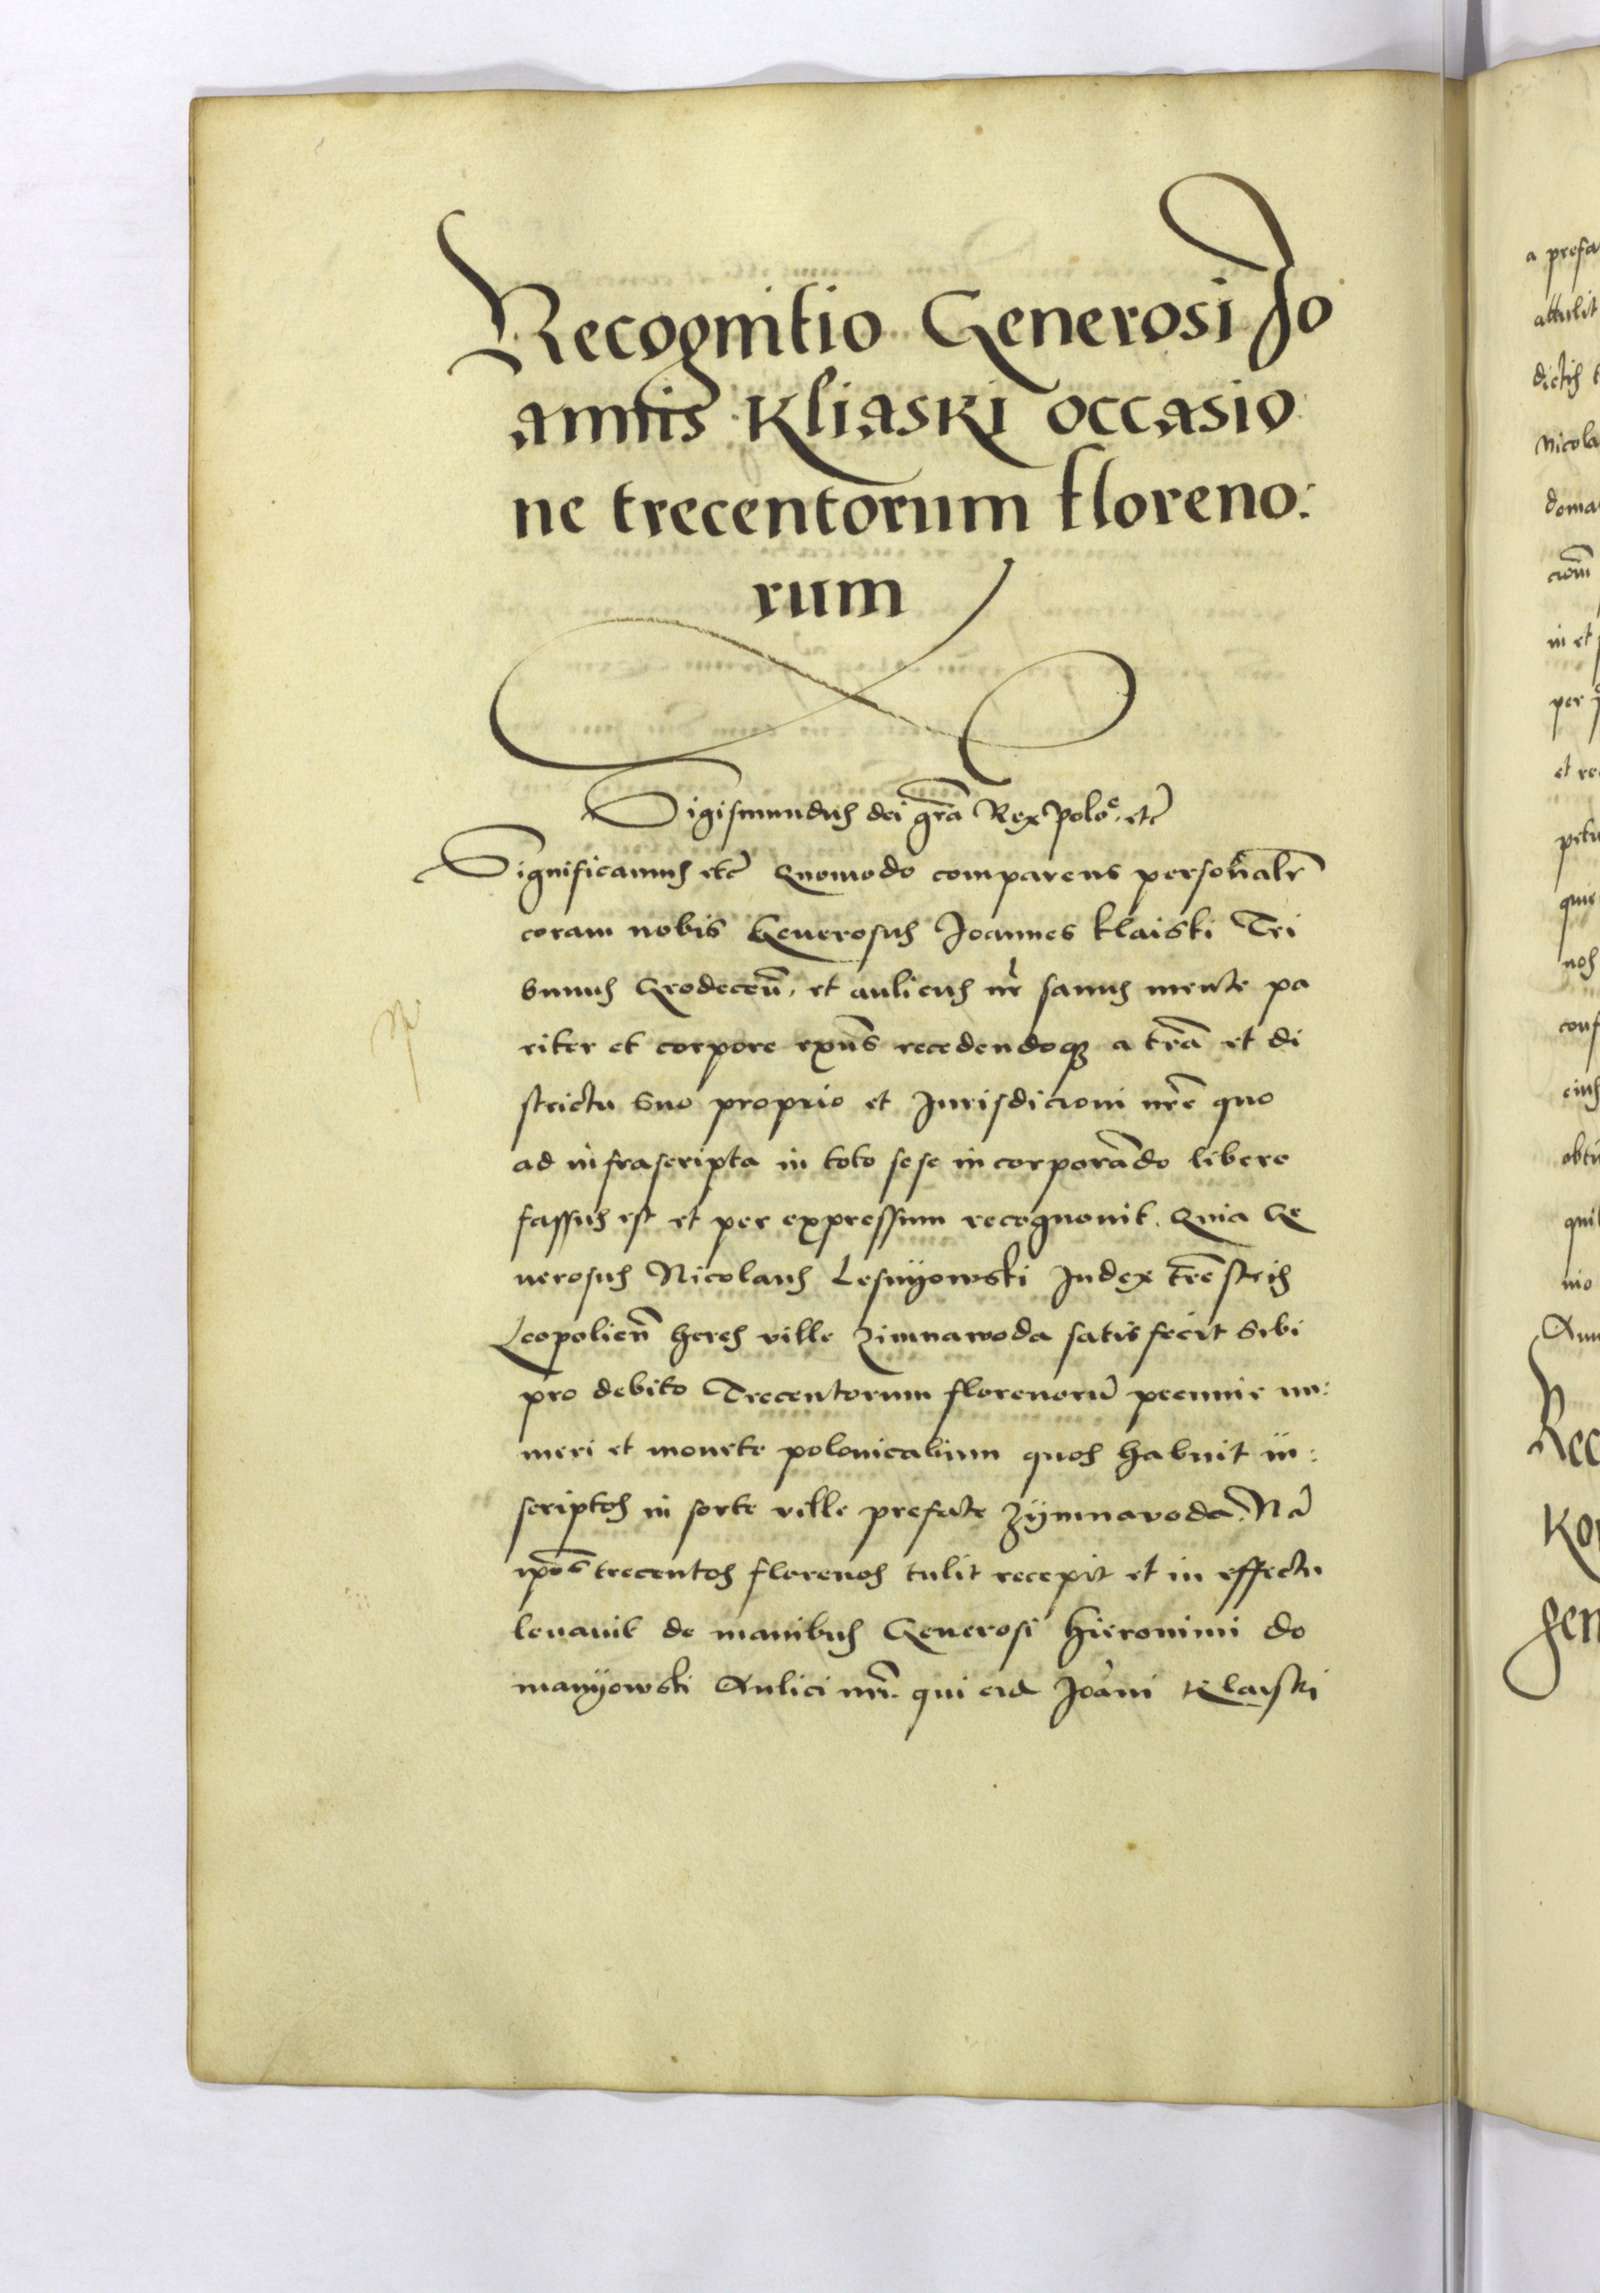 Recognitio Generosi Jo
annis Kliaski occasio
ne trecentorum floreno:
rum
Sigismundus dei gra Rex Polo. etc
Significamus etc Quomodo comparens personalr
coram nobis Generosus Joannes Klaiski Tri
bunus Grodecen. et aulicus nr sanus mente pa
riter et corpore exns recedendoq a tra et di
strictu suo proprio et Jurisdicioni nre quo
ad infrascripta in toto sese incorporando libere
fassus est et per expressum recognouit. Quia Ge
nerosus Nicolaus Lesnyowski Judex trestris
Leopolien heres ville Zimnawoda satisfecit sibi
pro debito Trecentorum florenoru pecunie nu:
meri et monete polonicalium quos habuit in:
scriptos in sorte ville prefate Zymnavoda. Na
ipos trecentos florenos tulit recepit et in effectu
leuauit de manibus Generosi Hieronimi do
manyowski Aulici nri. qui eid Joani Klaiski
a prefa
attulit
dictis
Nicola
doma
in et
per
et re
petu
que
nos
conf
eius
obti
qui
nio
Ann
Rec
Ko
gen